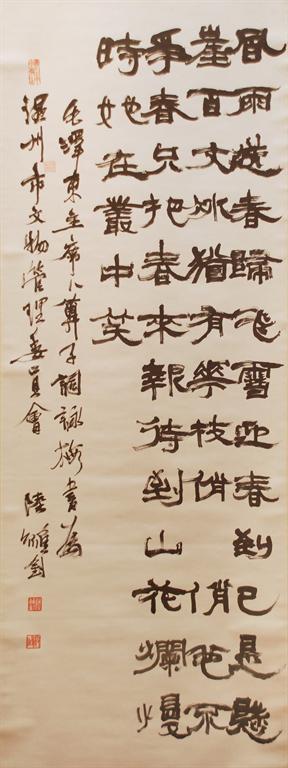 風雨送春歸飛雪迎春到已是懸
崖百丈冰猶有華枝俏俏也不
爭春只把春來報待到山花爛漫
時她在叢中笑
毛澤東主席卜算子詞詠梅書為
溫州市文物管理委員會 陸維釗